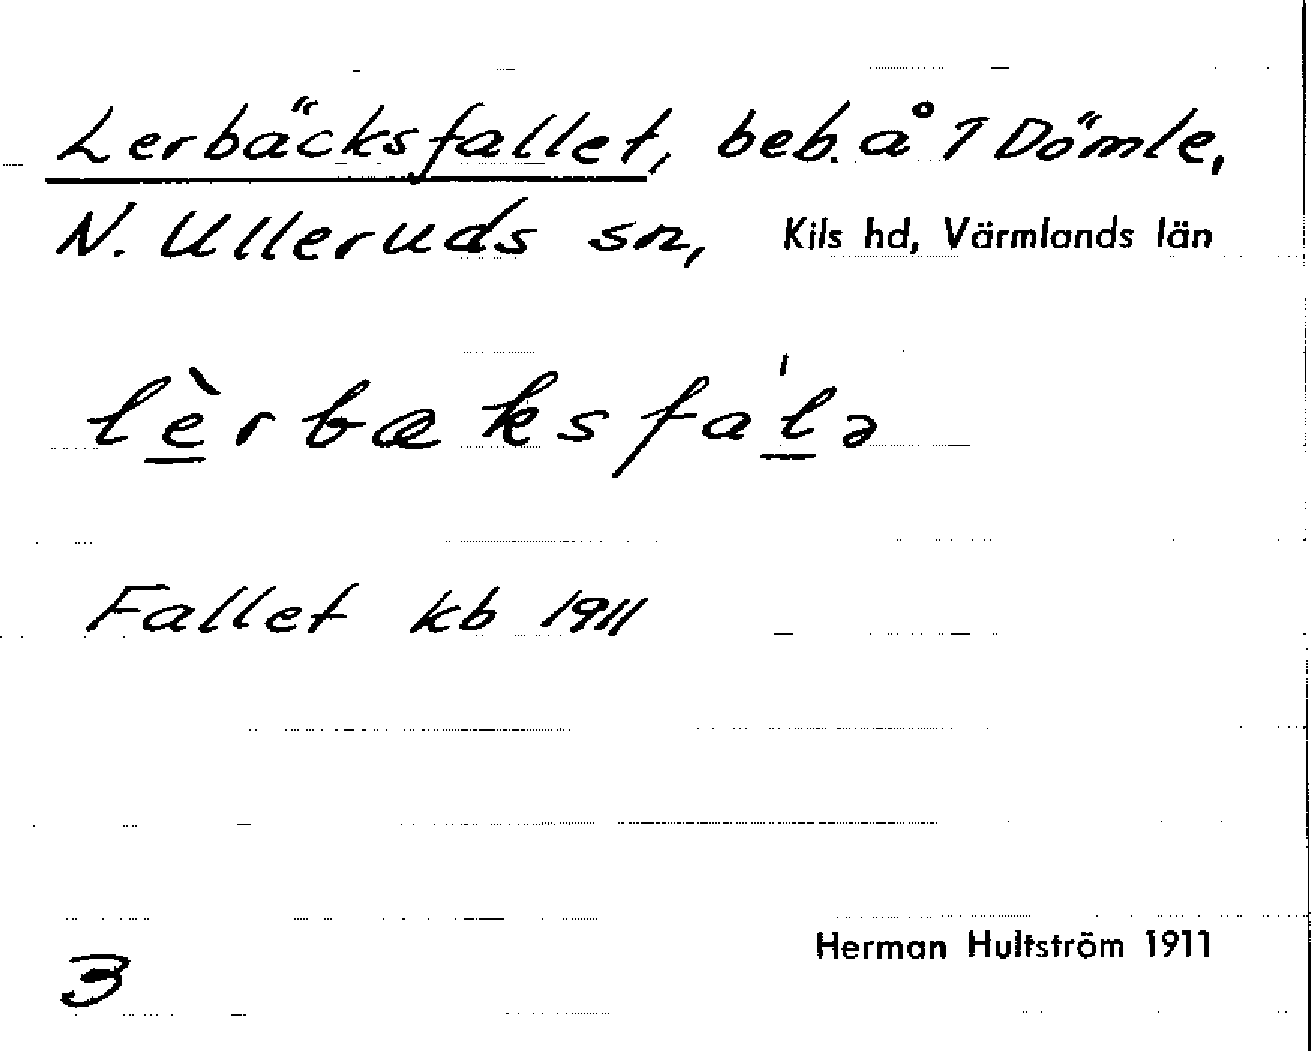 Lerbäcksfallet, beb. å 1 Dömle,
N. Ulleruds sn, Kils hd, Värmlands län
lèrbæksfa'lə
Fallet kb 1911
Herman Hultström 1911
3